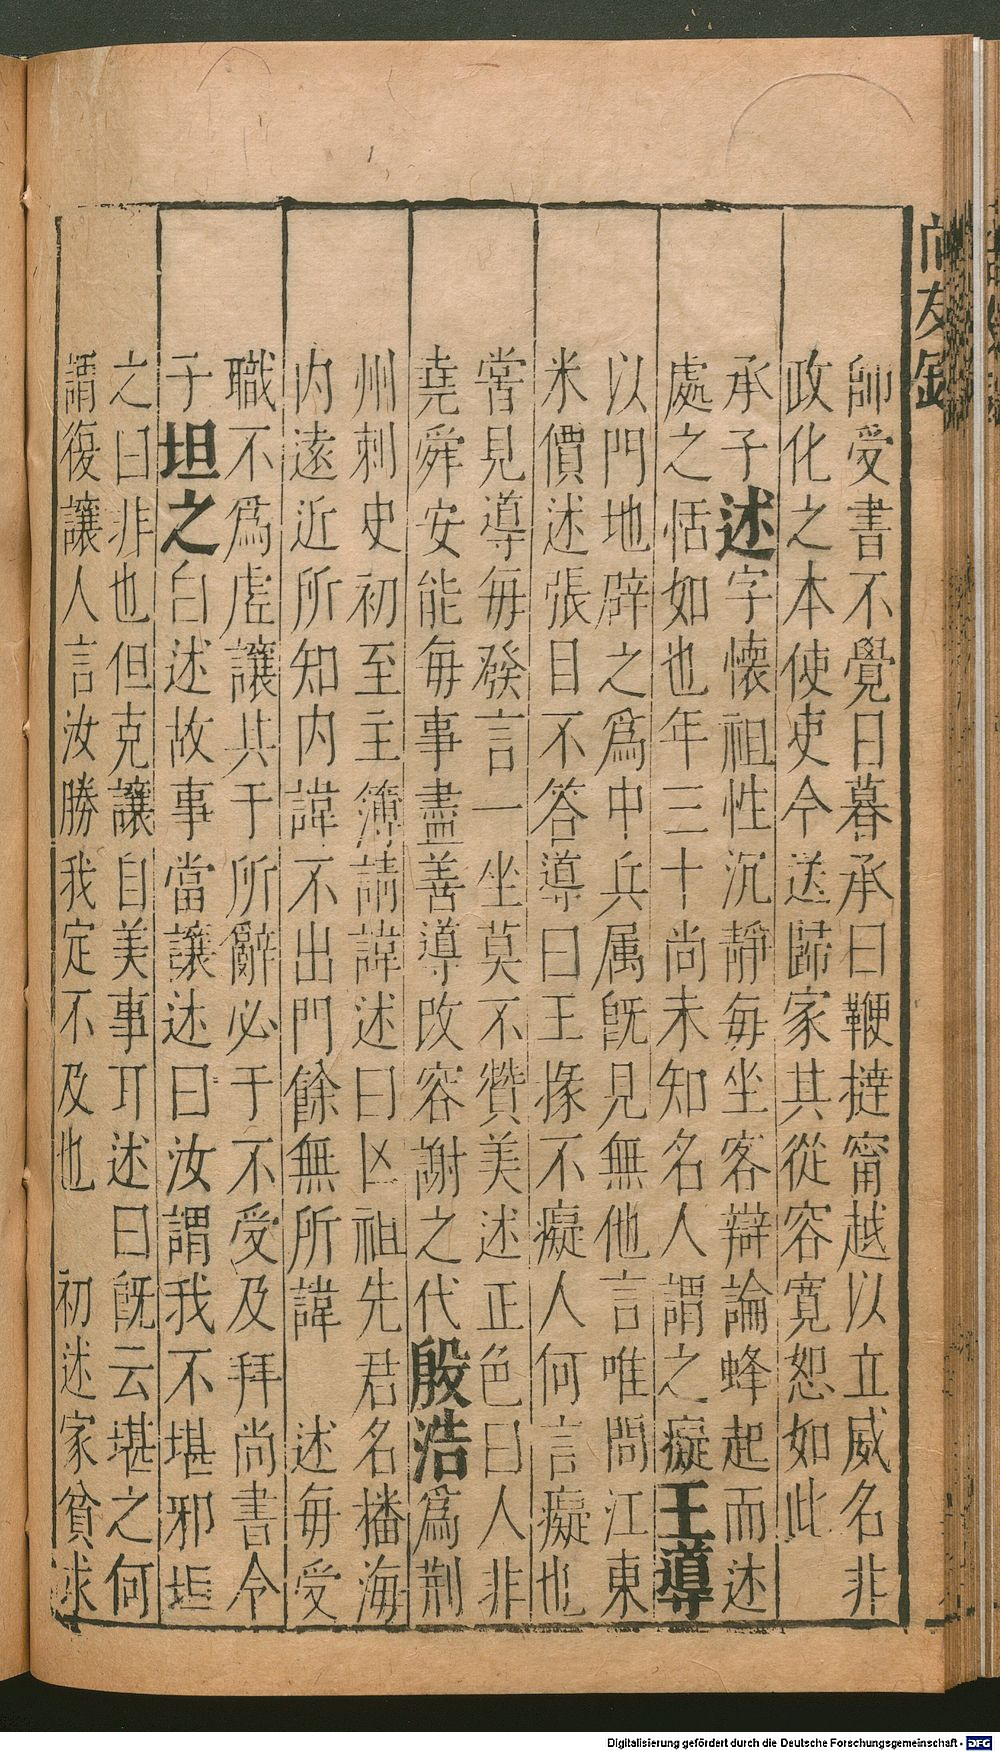 尚友錄
師受書不覺日暮承曰鞭撻甯越以立威名非
政化之本使吏令送歸家其從容寬恕如此
承子述字懷祖性沉靜每坐客辯論蜂起而述
處之恬如也年三十尚未知名人謂之癡王導
以門地辟之爲中兵属旣見無他言唯問江東
米價述張目不答導曰王掾不癡人何言癡也
嘗見導每發言一坐莫不贊美述正色曰人非
堯舜安能每事盡善導改容謝之代殷浩爲荆
州刺史初至主簿請諱述曰亾祖先君名播海
内遠近所知内諱不出門餘無所諱 述每受
職不爲虗讓其于所辭必于不受及拜尚書令
子坦之白述故事當讓述曰汝謂我不堪邪坦
之曰非也但克讓自美事耳述曰旣云堪之何
謂復讓人言汝勝我定不及也 初述家貧求
Digitalisierung gefördert durch die Deutsche Forschungsgemeinschaft - DFG